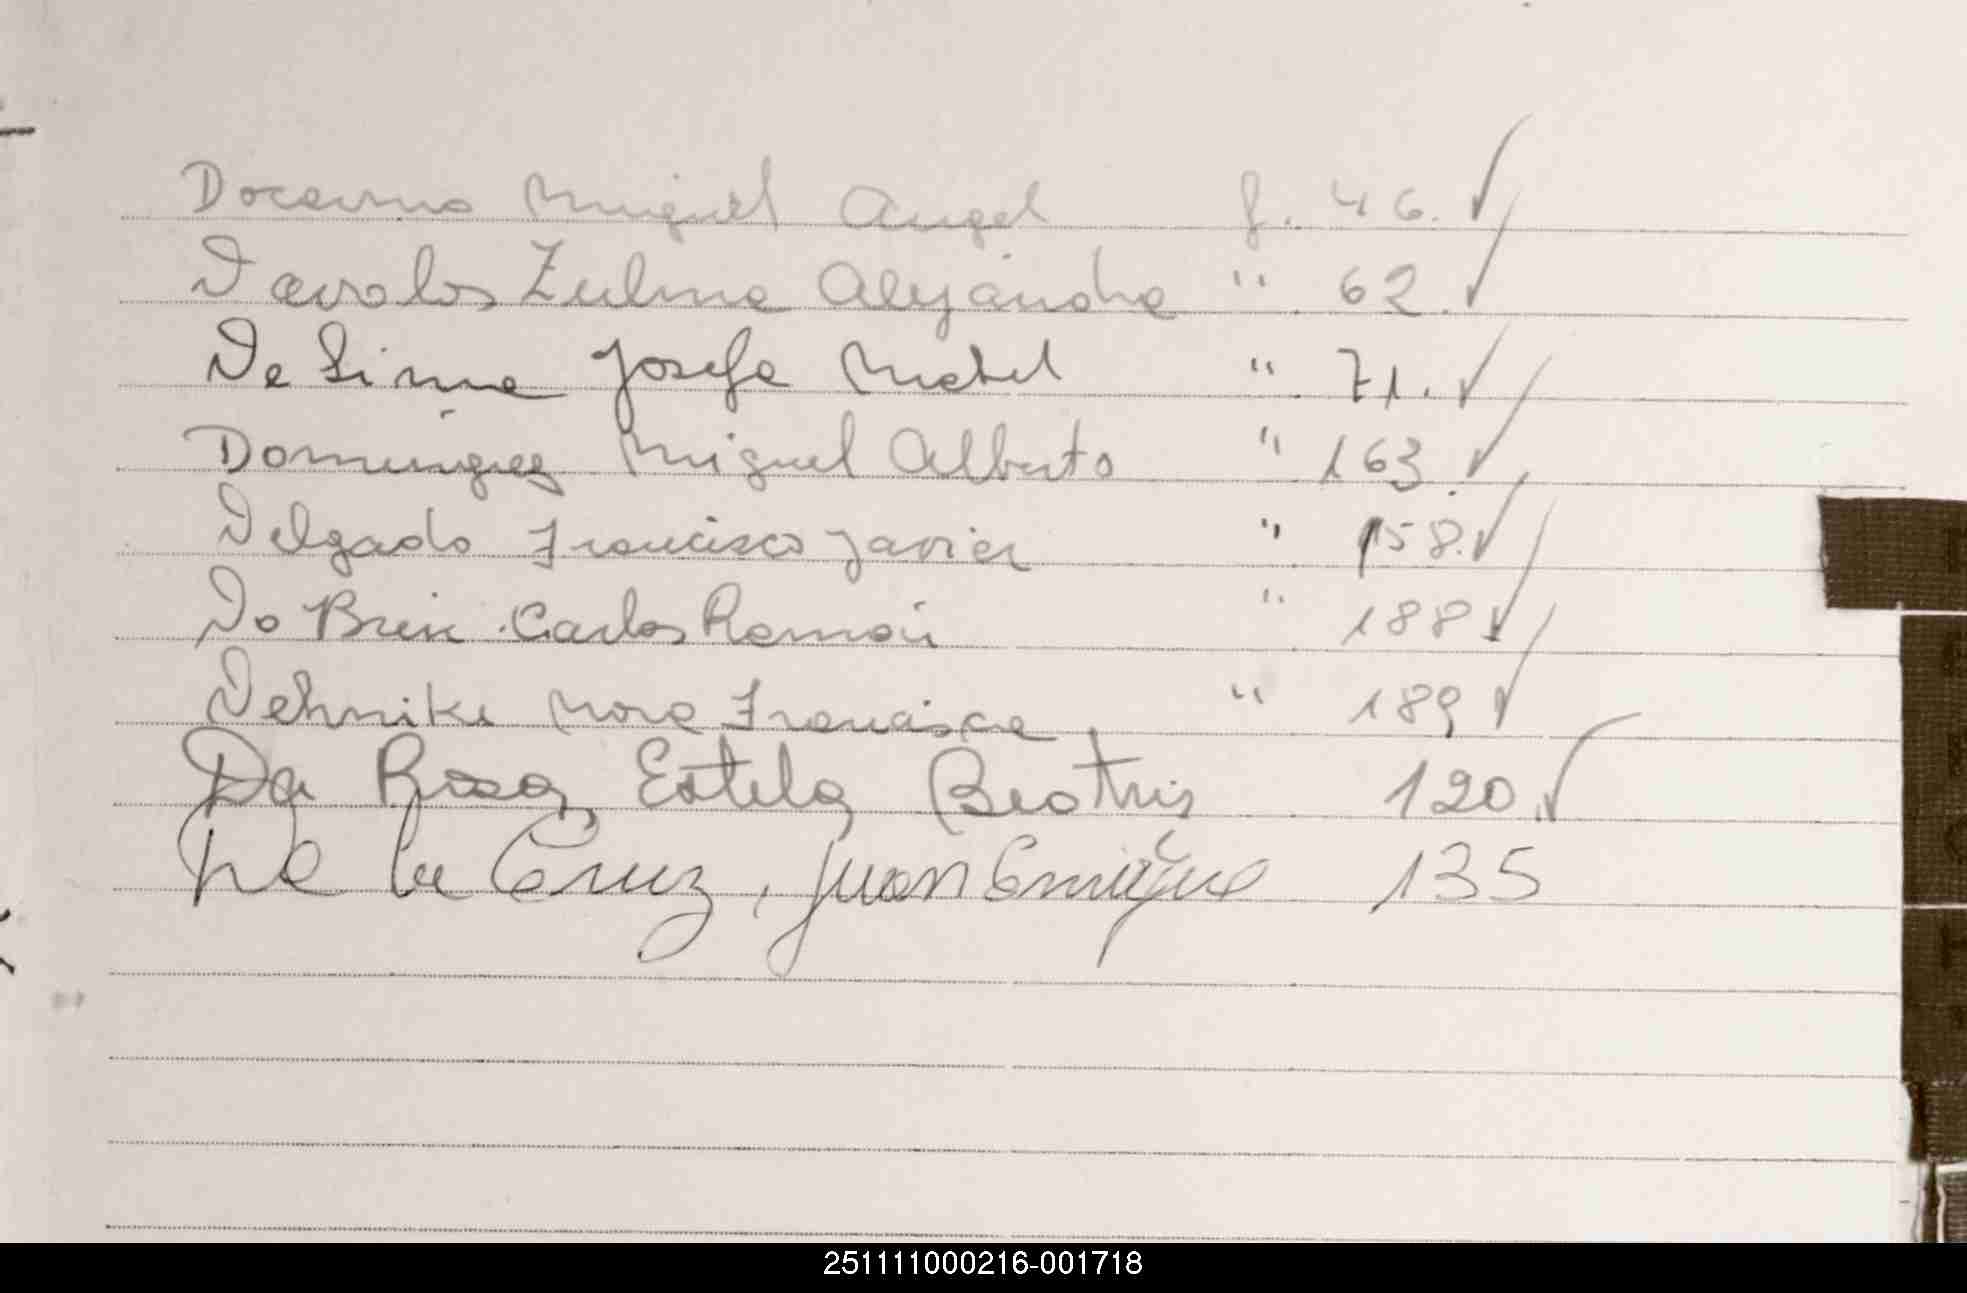 Docampo Miguel Angel f. 46. ✓
Davalos Zulma Alejandra " 62. ✓
De Sima Josefa Mabel " 71. ✓
Dominguez Miguel Alberto " 163. ✓
Delgado Francisco Javier " 158. ✓
Do Brix Carlos Ramón " 188 ✓
Nora Francisca " 189 ✓
Da Rosa, Estela, Beatris 120. ✓
De la Cruz, Juan Enrique 135
251111000216-001718